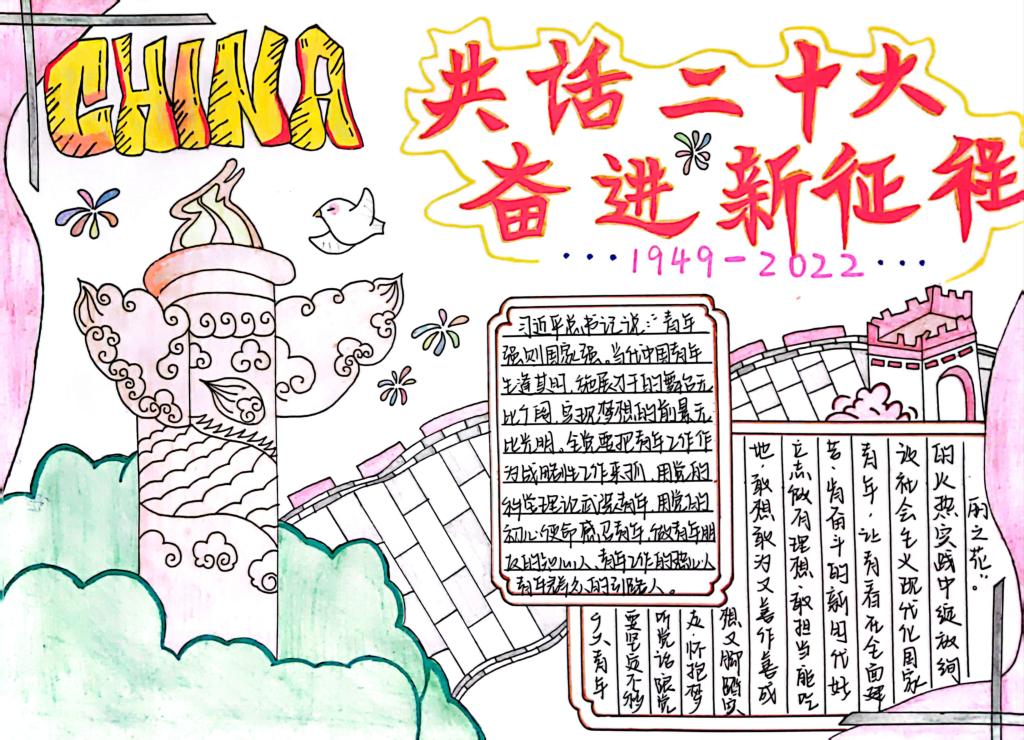 CHINA
共话二十大
奋进新征程
...1949-2022...
习近平总书记说:“青年
强则国家强。当代中国青年
生逢其时,施展才干的舞台无
比广阔,实现梦想的前景无
比光明。全党要把青年工作作
为战略性工作来抓,用党的
科学理论武装青年,用党的
初心使命感召青年,做青年朋
友的知心人、青年工作的热心人
青年群众的引路人。
广大青年
要坚定不移
听党话跟党
走,怀抱梦
想又脚踏实
地,敢想敢为又善作善成
立志做有理想、敢担当能吃
苦、肯奋斗的新时代好
青年,让青春在全面建
设社会主义现代化国家
的火热实践中绽放绚
丽之花”。